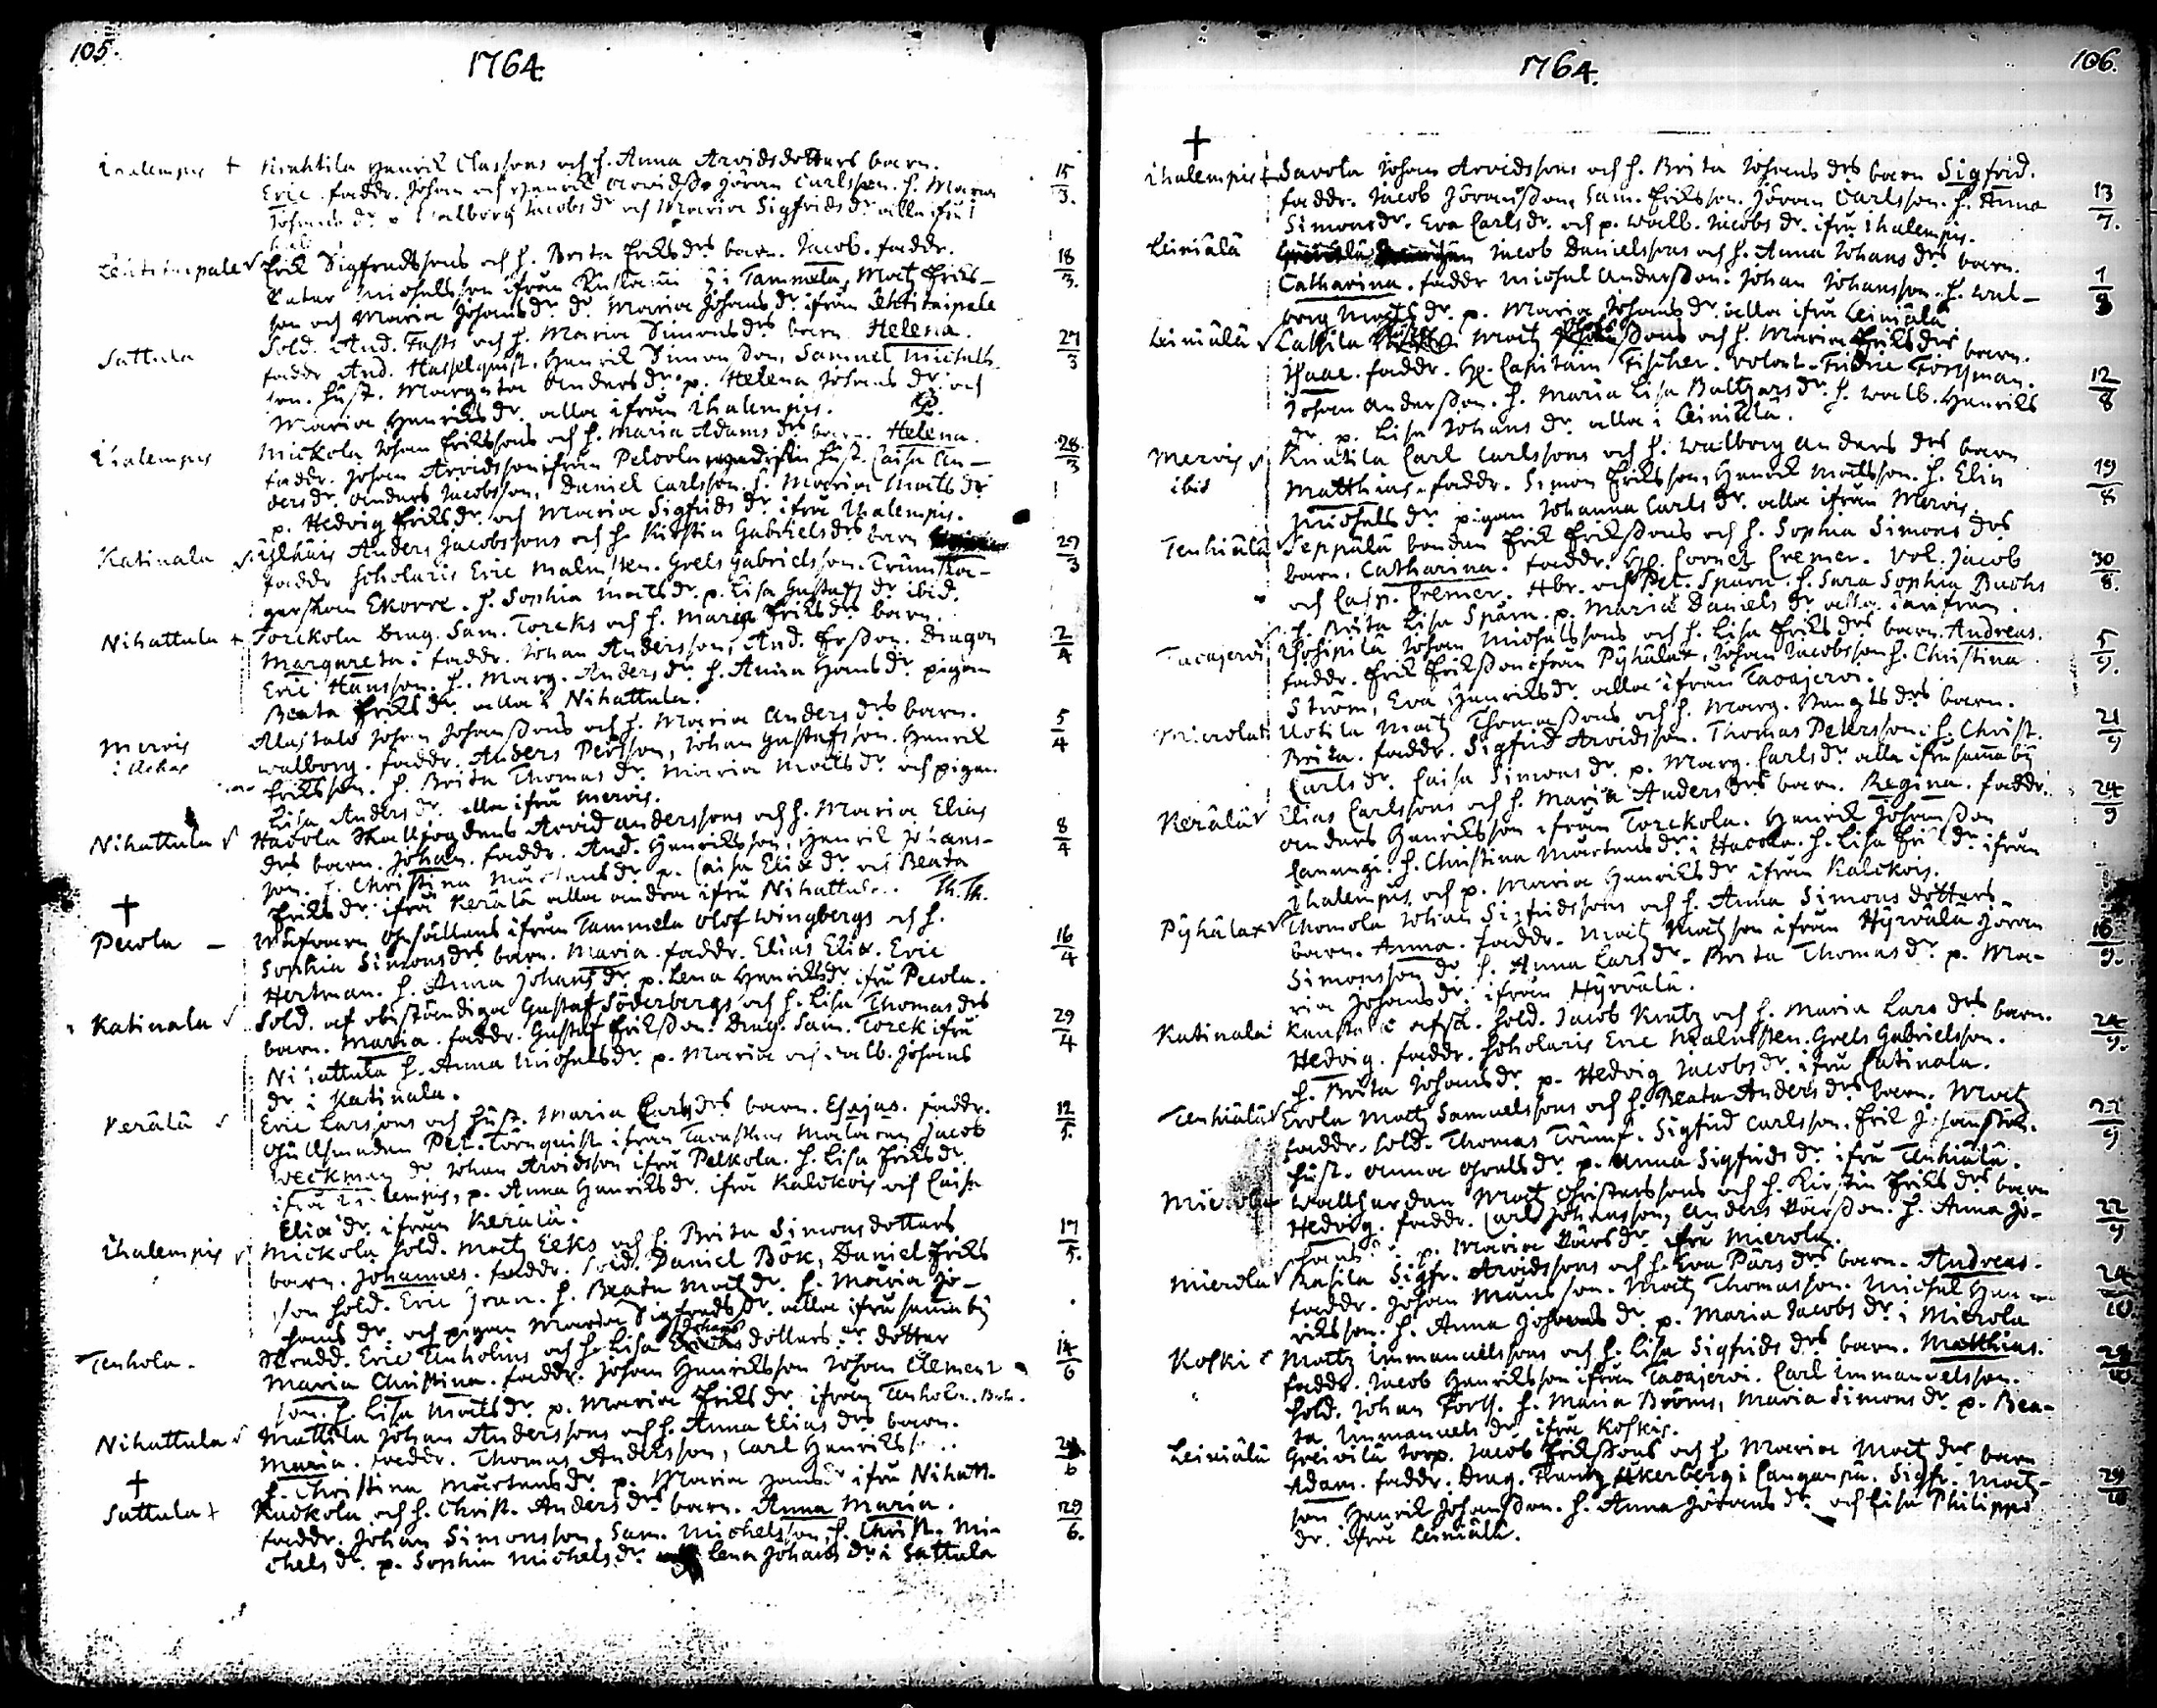 105.
1764.
Ihalempis + Nirahtila Henrik Classons och h. Anna Arvidsdotters barn.
Eric. faddr. Johan och Henrik Arvidss. Jöran Carlsson. h. Maria
15/3.
Johans dr. p. Walborg Jacobs dr och Maria Sigfrids dr alla ifrå I
hal.
Erik Sigfredssons och h. Brita Eriks drs barn. Jacob. faddr.
18/3.
Petter Michelsson ifrån i Tammela, Matz Eriks-
son och Maria Johans dr. dr Maria Johans dr. ifrån
Sattula Sold. And. Fasts och h. Maria Simons drs barn Helena.
27/3
faddr And. Hasselquist. Henrik Simonsson, Samuel Michels-
son. Hust. Margreta Anders dr. p. Helena Johans dr. och
Maria Henriks dr. alla ifrån Ihalempis.
Ihalempis Mickola Johan Erikssons och h. Maria Adams drs barn. Helena.
28/3
faddr. Johan Arvidsson ifrån Pelcola hust. Caisa An-
ders dr. Anders Jacobsson, Daniel Carlsson. h. Maria Mats dr
p. Hedvig Eriks dr. och Maria Sigfrids dr. ifrå Ihalempis.
Katinala Anders Jacobssons och h. Kirstin Gabriels drs barn
29/3
faddr Scholaris Eric Malmsten. Grels Gabrielsson. Trumsla-
garskan Ekorre. h. Sophia Mats dr. p. Lisa Gustafs dr. ibid.
Nihattula + Torckola Drag. Sam. Torcks och h. Maria Eriks drs barn.
2/4
Margareta. faddr. Johan Andersson, And. Ersson. Dragon
Eric Hansson. h. Marg. Anders dr. h. Anna Hans dr. pigan
Beata Eriks dr. alla i Nihattula.
Mervis Alastalo Johan Johanssons och h. Maria Anders drs barn.
5/4
Walborg. faddr. Anders Persson, Johan Gustafsson. Henrik
Eriksson. h. Brita Thomas dr. Maria Mats dr. och pigan
Lisa Anders dr. alla ifrå Mervis.
Nihattula Havola Skallfogdens Arvid Anderssons och h. Maria Elias
8/4
drs barn. Johan. faddr. And. Henriksson, Henrik Johans-
son. h. Christina Mårtens dr p. Caisa Eliæ dr och Beata
Eriks dr. ifrå Kerälä alla andra ifrå Nihattula. Th. Th.
+
Pecola - ifrån Tammela Olof Wingbergs och h.
16/4
Sophia Simons drs barn. Maria. faddr. Elias Eliæ. Eric
Hertman. h. Anna Johans dr. p. Lena Henriks dr. ifrå Pecola.
Katinala Sold. af obeständiga Gustaf Söderbergs och h. Lisa Thomas drs
29/4
barn. Maria. faddr. Gustaf Eriksson. Drag. Sam. Torck ifrå
Nihattula h. Anna Michels dr. p. Maria och Walb. Johans
dr i Katinala.
Kerälä Eric Larssons och Hust. Maria Carls drs barn. Esajas. faddr.
12/5.
Pet. Törnquist ifrån Tavasthus Jacob
Weckman dr Johan Arvidsson ifrå Pelkola. h. Lisa Eriks dr.
ifrå Ihalempis, p. Anna Henriks dr. ifrå Kalckois och Caisa
Eliæ dr. ifrån Kerälä.
Ihalempis Mickola Sold. Matz Eeks och h. Brita Simons dotters
17/5.
barn. Johannes. faddr. Sold. Daniel Bök, Daniel Eriks
son Sold. Eric Gran. h. Beata Mats dr. h. Maria Jo-
hans dr. och pigan Maria Sigfreds dr. alla ifrå samma by
Tenhola. Eric Tenholins och h. Lisa Johans dotters dotter
14/6
Maria Christina. faddr. Johan Henriksson Johan Clement
son. h. Lisa Mats dr. p. Maria Eriks dr. ifrån Tenhola.
Nihattula Mattila Johan Anderssons och h. Anna Elias drs barn.
Maria. faddr. Thomas Andersson, Carl Henrikss
h. Christina Mårtens dr. p. Maria Hans dr ifrå Nihatt.
+
Sattula + Kuckola och h. Christ. Anders drs barn. Anna Maria.
29/6.
faddr. Johan Simonsson, Sam. Michelsson h. Christ. Mi-
chels dr. p. Sophia Michels dr. Lena Johans dr. i Sattula
106.
1764.
+
Ihalempis + Savola Johan Arvidssons och h. Brita Johans drs barn Sigfrid.
13/7.
faddr. Jacob Jöransson, Sam. Eriksson. Jöran Carlsson. h. Anna
Simons dr. Eva Carls dr. och p. Walb. Jacobs dr. ifrå Ihalempis.
Leiniälä Jacob Danielssons och h. Anna Johans drs barn.
1/8
Catharina. faddr Michel Andersson. Johan Johansson. h. Wal-
borg Mats dr. p. Maria Johans dr. alla ifrå Leiniälä
Leiniälä Lassila Matz och h. Maria Eriks drs barn.
12/8
Isaac. faddr. Hr. Capitain Fischer. Volont. Fridric Forsman.
Johan Andersson. h. Maria Lisa Baltzars dr. h. Walb. Henriks
dr. p. Lisa Johans dr. alla i Leiniälä.
Mervis Knutila Carl Carlssons och h. Walborg Anders drs barn
19/8
ibid Matthias. faddr. Simon Eriksson, Henrik Matsson. h. Elin
Michels dr. pigan Johanna Carls dr. alla ifrån Mervis.
Tenhiälä Seppälä bonden Erik Erikssons och h. Sophia Simons drs
30/8.
barn. Catharina. faddr. Hr. Cornet Cremer. Vol. Jacob
och Casp. Cremer. Hbr. och Pet. Sparn. h. Sara Sophia Buchs
h. Brita Lisa Sparn. p. Maria Daniels dr. alla därifrån.
Johan Michelssons och h. Lisa Eriks drs barn. Andreas.
5/9.
faddr. Erik Eriksson ifrån Pyhälax, Johan Jacobsson h. Christina
Ström, Eva Henriks dr. alla ifrån Tavajervi.
Uotila Matz Thomassons och h. Marg. Bengts drs barn.
21/9
Brita. faddr. Sigfrid Arvidsson. Thomas Petersson. h. Christ.
Carls dr. Caisa Simons dr. p. Marg. Carls dr. alla ifrå samma by
Kerälä Elias Carlssons och h. Maria Anders drs barn. Regina. faddr.
24/9
Anders Henriksson ifrån Torckola. Henrik Johansson
h. Christina Mårtens dr. i Havola. h. Lisa Eriks dr. ifrån
Ihalempis och p. Maria Henriks dr ifrån Kalckois.
Pyhälax Thomola Johan Sigfridssons och h. Anna Simons dotters
16/9.
barn. Anna. faddr. Matz Matsson ifrån Hyrvälä Jöran
Simonsson dr h. Anna Lars dr. Brita Thomas dr. p. Ma-
ria Johans dr. ifrån Hyrvälä.
Katinala afsk. Sold. Jacob Krutz och h. Maria Lars drs barn.
24/9.
Hedvig. faddr. Scholaris Eric Malmsten. Grels Gabrielsson.
h. Brita Johans dr. p. Hedvig Jacobs dr. ifrå Catinala.
Tenhiälä Erola Matz Samuelssons och h. Beata Anders drs barn. Matz
faddr. Sold. Thomas Triumf. Sigfrid Carlsson. Erik Johansson.
Hust. Anna Grels dr. p. Anna Sigfrids dr. ifrå Tenhiälä.
Mierola Matz Christerssons och h. Kirstin Eriks drs barn
22/9
Hedvig. faddr. Carl Johansson, Anders Pärsson. h. Anna Jo-
hans p. Maria Pärs dr. ifrå Mierola.
Mierola Rasila Sigfr. Arvidssons och h. Eva Pärs drs barn. Andreas.
24/10
faddr. Johan Månsson. Matz Thomasson. Michel Hen
riksson. h. Anna Johans dr. p. Maria Jacobs dr. i Mierola
Koski Matz Immanuelssons och h. Lisa Sigfrids drs barn. Matthias.
faddr. Jacob Henriksson ifrån Tavajervi. Carl Immanuelsson.
Sold. Johan Forss. h. Maria Broms, Maria Simons dr. p. Bea-
ta Immanuels dr. ifrå Koskis.
Leiniälä Greivilä torp. Jacob Erikssons och h. Maria Matz drs barn
29/10
Adam. faddr. Drag. Frantz Åkerberg i Canganpä. Sigfr. Matz-
son Henrik Johansson. h. Anna Jörans dr. och Lisa Philipps
dr. ifrå Leiniälä.